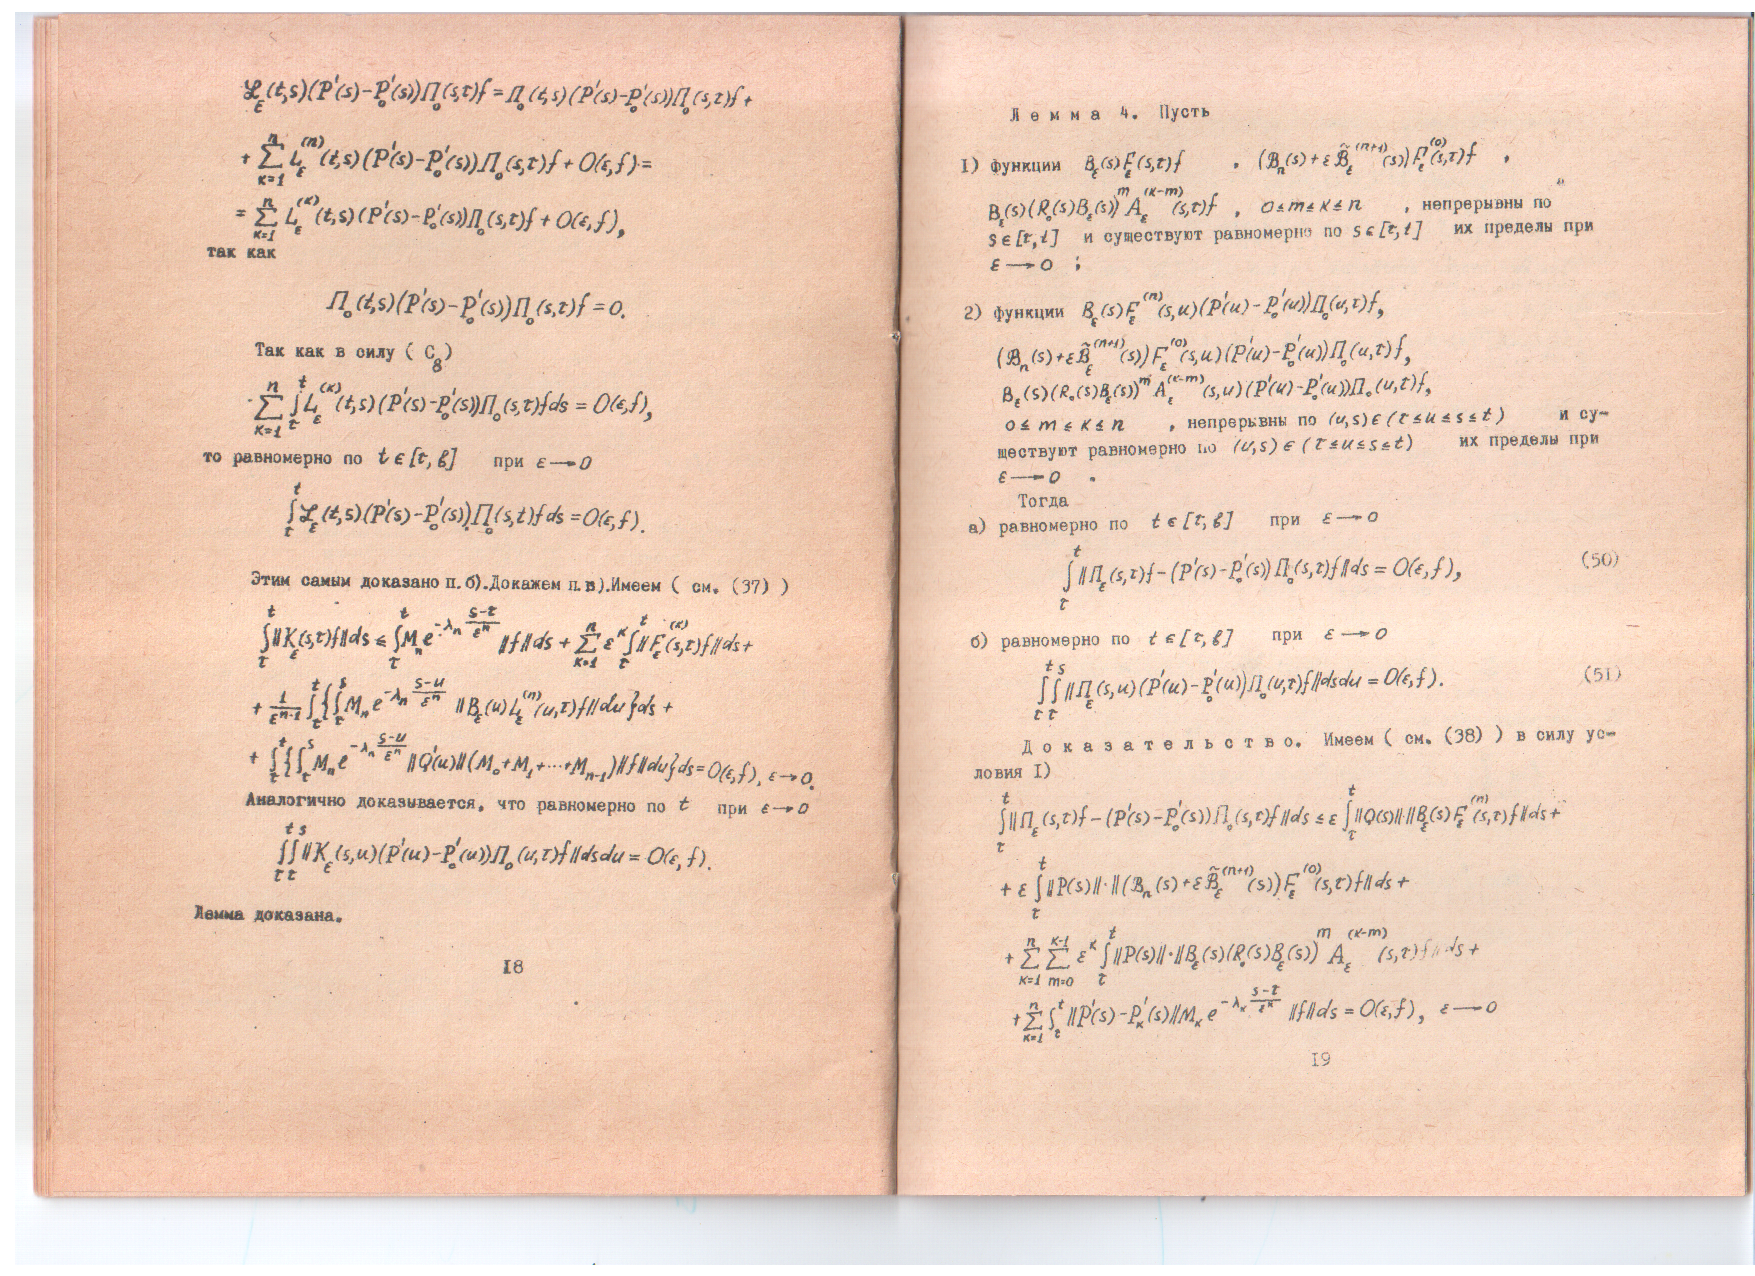 ℒ_ε(t,s)(P'(s)-P'_0(s))Π_0(s,τ)f = Π_0(t,s)(P'(s)-P'_0(s))Π_0(s,τ)f +
+ Σ_{κ=1}^{n} L_ε^{(n)}(t,s)(P'(s)-P'_0(s))Π_0(s,τ)f + O(ε,f) =
= Σ_{κ=1}^{n} L_ε^{(κ)}(t,s)(P'(s)-P'_0(s))Π_0(s,τ)f + O(ε,f),
так как
Π_0(t,s)(P'(s)-P'_0(s))Π_0(s,τ)f = 0.
Так как в силу ( C_8)
Σ_{κ=1}^{n} ∫_τ^t L_ε^{(κ)}(t,s)(P'(s)-P'_0(s))Π_0(s,τ)f ds = O(ε,f),
то равномерно по t ∈ [τ, b] при ε → 0
∫_τ^t ℒ_ε(t,s)(P'(s)-P'_0(s))Π_0(s,t)f ds = O(ε,f).
Этим самым доказано п.б).Докажем п.в).Имеем ( см. (37) )
∫_τ^t ‖K_ε(s,τ)f‖ds ≤ ∫_τ^t M_n e^{-λ_n (s-τ)/ε^n} ‖f‖ds + Σ_{κ=1}^{n} ε^κ ∫_τ^t ‖F_ε^{(κ)}(s,τ)f‖ds +
+ 1/ε^{n-1} ∫_τ^t {∫_τ^s M_n e^{-λ_n (s-u)/ε^n} ‖B_ε(u)L_ε^{(n)}(u,τ)f‖du}ds +
+ ∫_τ^t {∫_τ^s M_n e^{-λ_n (s-u)/ε^n} ‖Q'(u)‖(M_0+M_1+···+M_{n-1})‖f‖du}ds = O(ε,f), ε → 0.
Аналогично доказывается, что равномерно по t при ε → 0
∫_τ^t ∫_τ^s ‖K_ε(s,u)(P'(u)-P'_0(u))Π_0(u,τ)f‖dsdu = O(ε,f).
Лемма доказана.
18
Лемма 4. Пусть
1) функции B_ε(s)F_ε(s,τ)f , (B_n(s)+εB̃_ε^{(n+1)}(s))F_ε^{(0)}(s,τ)f ,
B_ε(s)(R_0(s)B_ε(s))^m A_ε^{(κ-m)}(s,τ)f , 0≤m≤κ≤n , непрерывны по
s∈[τ,t] и существуют равномерно по s∈[τ,t] их пределы при
ε → 0 ;
2) функции B_ε(s)F_ε^{(n)}(s,u)(P'(u)-P'_0(u))Π_0(u,τ)f,
(B_n(s)+εB̃_ε^{(n+1)}(s))F_ε^{(0)}(s,u)(P'(u)-P'_0(u))Π_0(u,τ)f,
B_ε(s)(R_0(s)B_ε(s))^m A_ε^{(κ-m)}(s,u)(P'(u)-P'_0(u))Π_0(u,τ)f,
0≤m≤κ≤n , непрерывны по (u,s)∈(τ≤u≤s≤t) и су-
ществуют равномерно по (u,s)∈(τ≤u≤s≤t) их пределы при
ε → 0 .
Тогда
а) равномерно по t ∈ [τ, b] при ε → 0
∫_τ^t ‖Π_ε(s,τ)f-(P'(s)-P'_0(s))Π_0(s,τ)f‖ds = O(ε,f), (50)
б) равномерно по t ∈ [τ, b] при ε → 0
∫_τ^t ∫_τ^s ‖Π_ε(s,u)(P'(u)-P'_0(u))Π_0(u,τ)f‖dsdu = O(ε,f). (51)
Доказательство. Имеем ( см. (38) ) в силу ус-
ловия 1)
∫_τ^t ‖Π_ε(s,τ)f-(P'(s)-P'_0(s))Π_0(s,τ)f‖ds ≤ ε∫_τ^t ‖Q(s)‖·‖B_ε(s)F_ε^{(n)}(s,τ)f‖ds +
+ ε∫_τ^t ‖P(s)‖·‖(B_n(s)+εB̃_ε^{(n+1)}(s))F_ε^{(0)}(s,τ)f‖ds +
+ Σ_{κ=1}^{n} Σ_{m=0}^{κ-1} ε^κ ∫_τ^t ‖P(s)‖·‖B_ε(s)(R_0(s)B_ε(s))^m A_ε^{(κ-m)}(s,τ)f‖ds +
+ Σ_{κ=1}^{n} ∫_τ^t ‖P'(s)-P'_κ(s)‖M_κ e^{-λ_κ (s-τ)/ε^κ} ‖f‖ds = O(ε,f), ε → 0
19